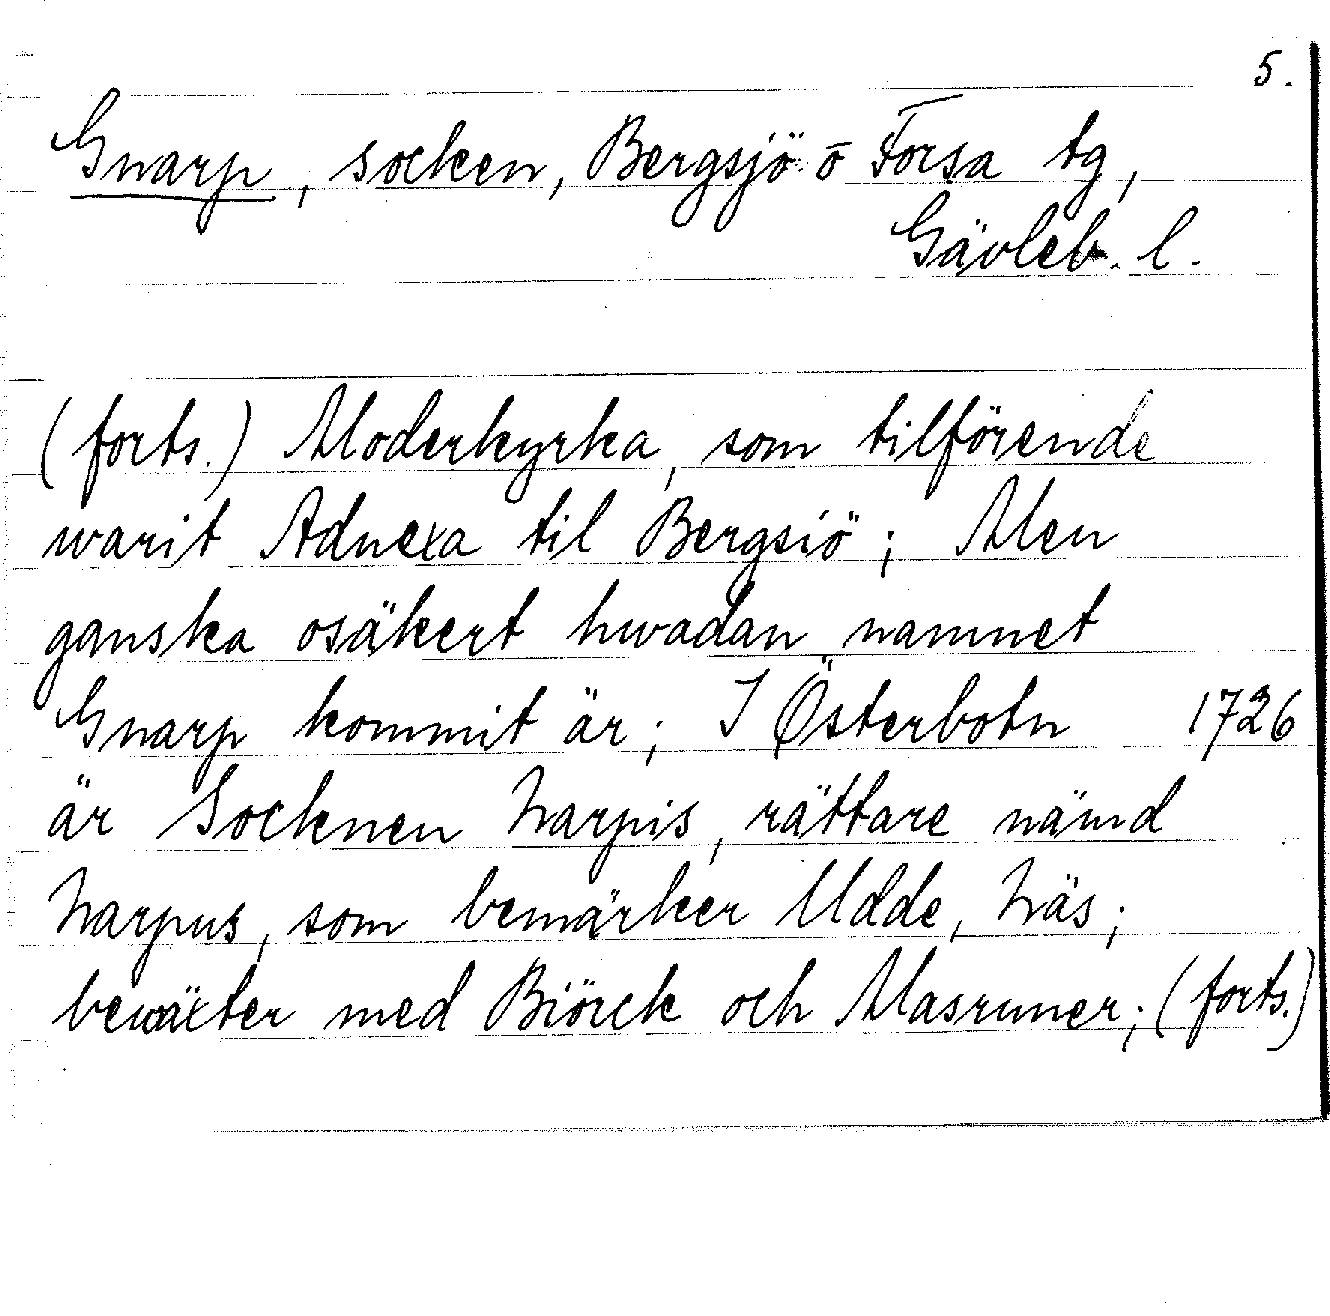 5.
Gnarp, socken, Bergsjö o Forsa tg,
Gävleb. l.
(forts.) Moderkyrka, som tilförende
warit Adnexa til Bergsiö; Men
ganska osäkert hwadan namnet
Gnarp kommit är; I Österbotn 1726
är Socknen Narpis, rättare nämd
Narpus, som bemärker Udde, Näs;
bewäxter med Biörck och Masruner; (forts.)